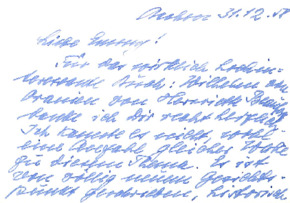 Aachen 31.12.
Liebe Emmy!
Für das wirklich hochin-
teressante Buch: Wilhelm von
Oranien von Henriette
danke ich Dir recht herzlich.
Ich kannte es nicht, wohl
eine Anzahl gleicher
zu diesem Thema. Es ist
vom völlig neuen Gesichts-
punkt geschrieben, historisch